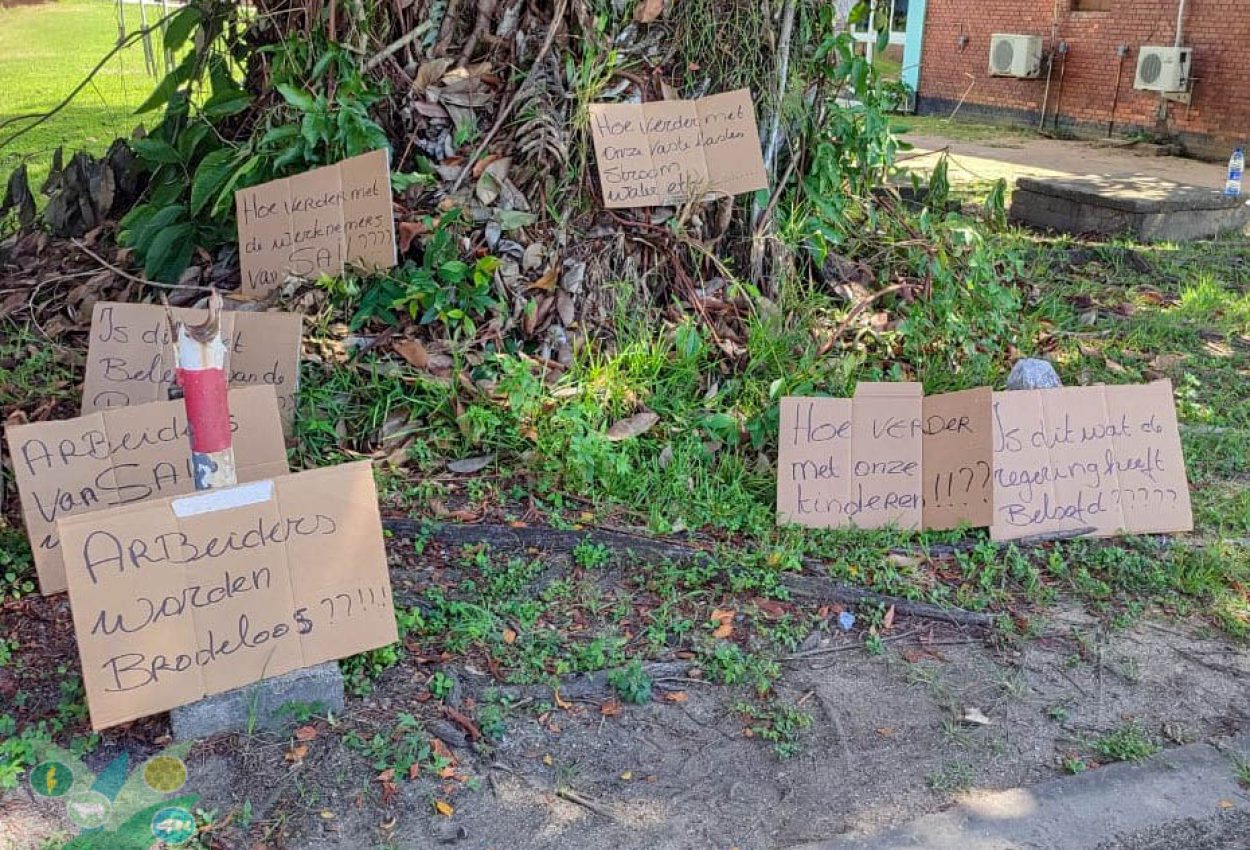 Hoe verder met
onze vaste lasten
Stroom
water etc
Hoe verder met
de werknemers
van SAI!????
Is dit het
Beleid van de
ARBeiders
van SAI
ARBeiders
worden
Brodeloos??!!!
Hoe verder
met onze
kinderen!!!??
Is dit wat de
regering heeft
Beloofd?????